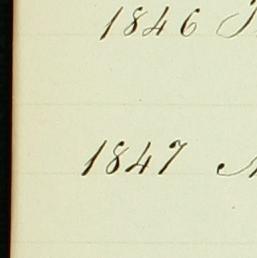 1846
1847